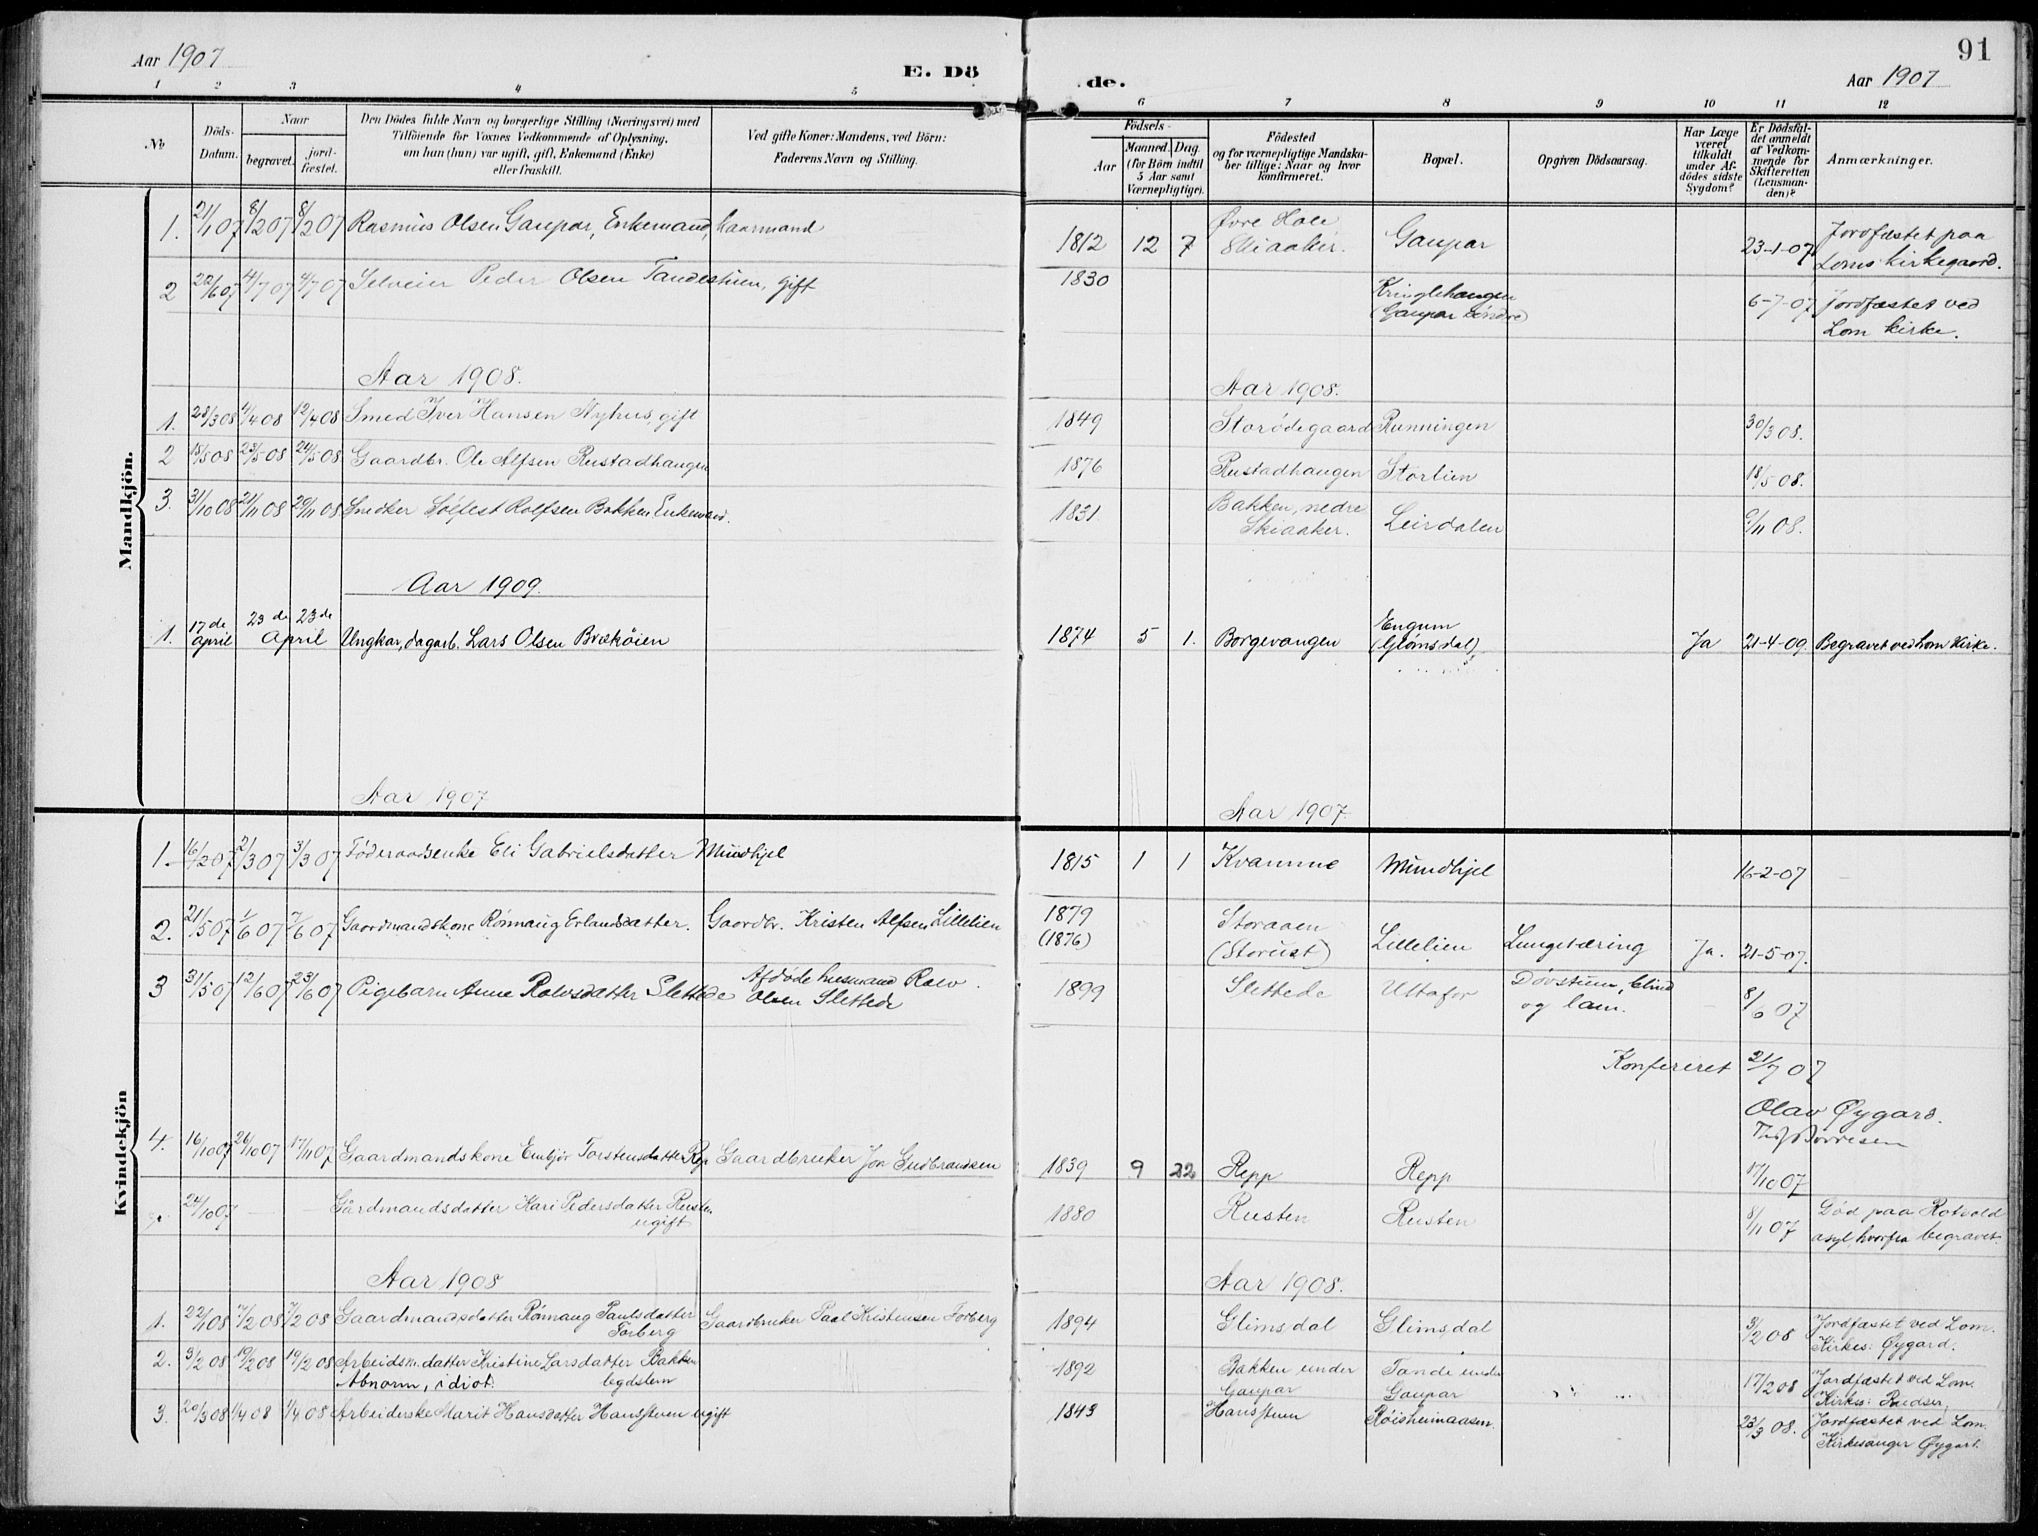 Aar 1907
E. Dö de.
Aar 1907
91
1 2 3 4 5 6 7 8 9 10 11 12
No
Döds-Datum.
Naar
begravet.
jord-fæstet.
Den Dödes fulde Navn og borgerlige Stilling (Næringsvei) med
Tilföiende for Voxnes Vedkommende af Oplysning,
om han (hun) var ugift, gift, Enkemand (Enke)
eller fraskilt.
Ved gifte Koner: Mandens, ved Börn:
Faderens Navn og Stilling.
Födsels-
Aar
Maaned. Dag.
(for Börn indtil
5 Aar samt
Værnepligtige).
Födested
og for værnepligtige Mandska-
ber tillige: Naar og hvor
konfirmeret.
Bopæl.
Opgiven Dödsaarsag.
Har Læge
været
tilkaldt
under Af-
dödes sidste
Sygdom?
Er Dödsfal-
det anmeldt
af Vedkom-
mende for
Skifteretten
(Lensman-
den)?
Anmærkninger.
Mandkjön.
1. 21/1 07 8/2 07 8/2 07 Rasmus Olsen Gaupar, Enkemand, kaarmand 1812 12 7 Øvre Hole Skiaaker. Gaupar 23-1-07 Jordfæstet paa Loms kirkegaard.
2 22/6 07 4/7 07 4/7 07 Selveier Peder Olsen Tandestuen, gift 1830 Kringlehaugen (Gaupar søndre) 6-7-07 Jordfæstet ved Lom kirke.
Aar 1908. Aar 1908.
1. 28/3 08 4/4 08 12/4 08 Smed Iver Hansen Nyhus, gift 1849 Storødegaard Runningen 30/3 08.
2 15/5 08 23/5 08 24/5 08 Gaardbr. Ole Alfsen Rustadhaugen 1876 Rustadhaugen Stortien 18/5 08.
3. 31/10 08 21/11 08 20/11 08 Snedker Solfest Rolfsen Bakken Enkemand. 1831 Bakken, nedre Skiaaker. Leirdalen 9/11 08.
Aar 1909.
1. 17de April 23de April 23de Ungkar, dagarb. Lars Olsen Brækøien 1874 5 1. Borgevangen Engum (Glømsdal) Ja 21-4-09. Begravet ved Lom Kirke.
Aar 1907 Aar 1907.
Kvindekjön
1. 16/2 07 2/3 07 3/3 07 Føderaadsenke Eli Gabrielsdatter Mundhjel 1815 1 1 Kvamme Mundhjel 16-2-07
2. 21/5 07 1/6 07 7/6 07 Gaardmandskone Rønnaug Erlandsdatter. Gaardbr. Kristen Alfsen Lillelien 1879 (1876) Storaaen (Storust) Lillelien Lungetæring Ja. 21-5-07.
3 31/5 07 12/6 07 23/6 07 Pigebarn Anne Rolvsdatter Slettede Afdøde husmand Rolv Olsen Slettede 1899 Slettede Uttafor Døvstum, blind og lam. 8/6 07
Konfereret 21/7 07
Olav Øygard.
4. 16/10 07 26/10 07 17/11 07 Gaardmandskone Embjør Torstensdatter Rep Gaardbruker Jon Gudbrandsen 1839 9 22 Repp Repp 17/10 07
24/10 07 Gårdmandsdatter Kari Pedersdatter Rusten ugift 1880 Rusten Rusten 8/11 07 Død paa Rotvold asyl, hvorfra begravet.
Aar 1908 Aar 1908.
1. 22/1 08 7/2 08 7/2 08 Gaardmandsdatter Rønnaug Paulsdatter Forberg Gaardbruker Paal Kristensen Forberg 1894 Glimsdal Glimsdal 3/2 08 Jordfæstet ved Lom. Kirkes: Øygard.
2. 3/2 08 19/2 08 19/2 08 Arbeidsm.datter Kristine Larsdatter Bakken Abnorm, idiot. legdslem 1892 Bakken under Gaupar Tande under Gaupar 17/2 08 Jordfæstet ved Lom. Kirkes:
3. 20/3 08 1/4 08 1/4 08 Arbeiderske Marit Hansdatter Hansstuen ugift 1843 Hansstuen Røisheimaasen. 23/3 08. Jordfæstet ved Lom. Kirkesanger Øygard.